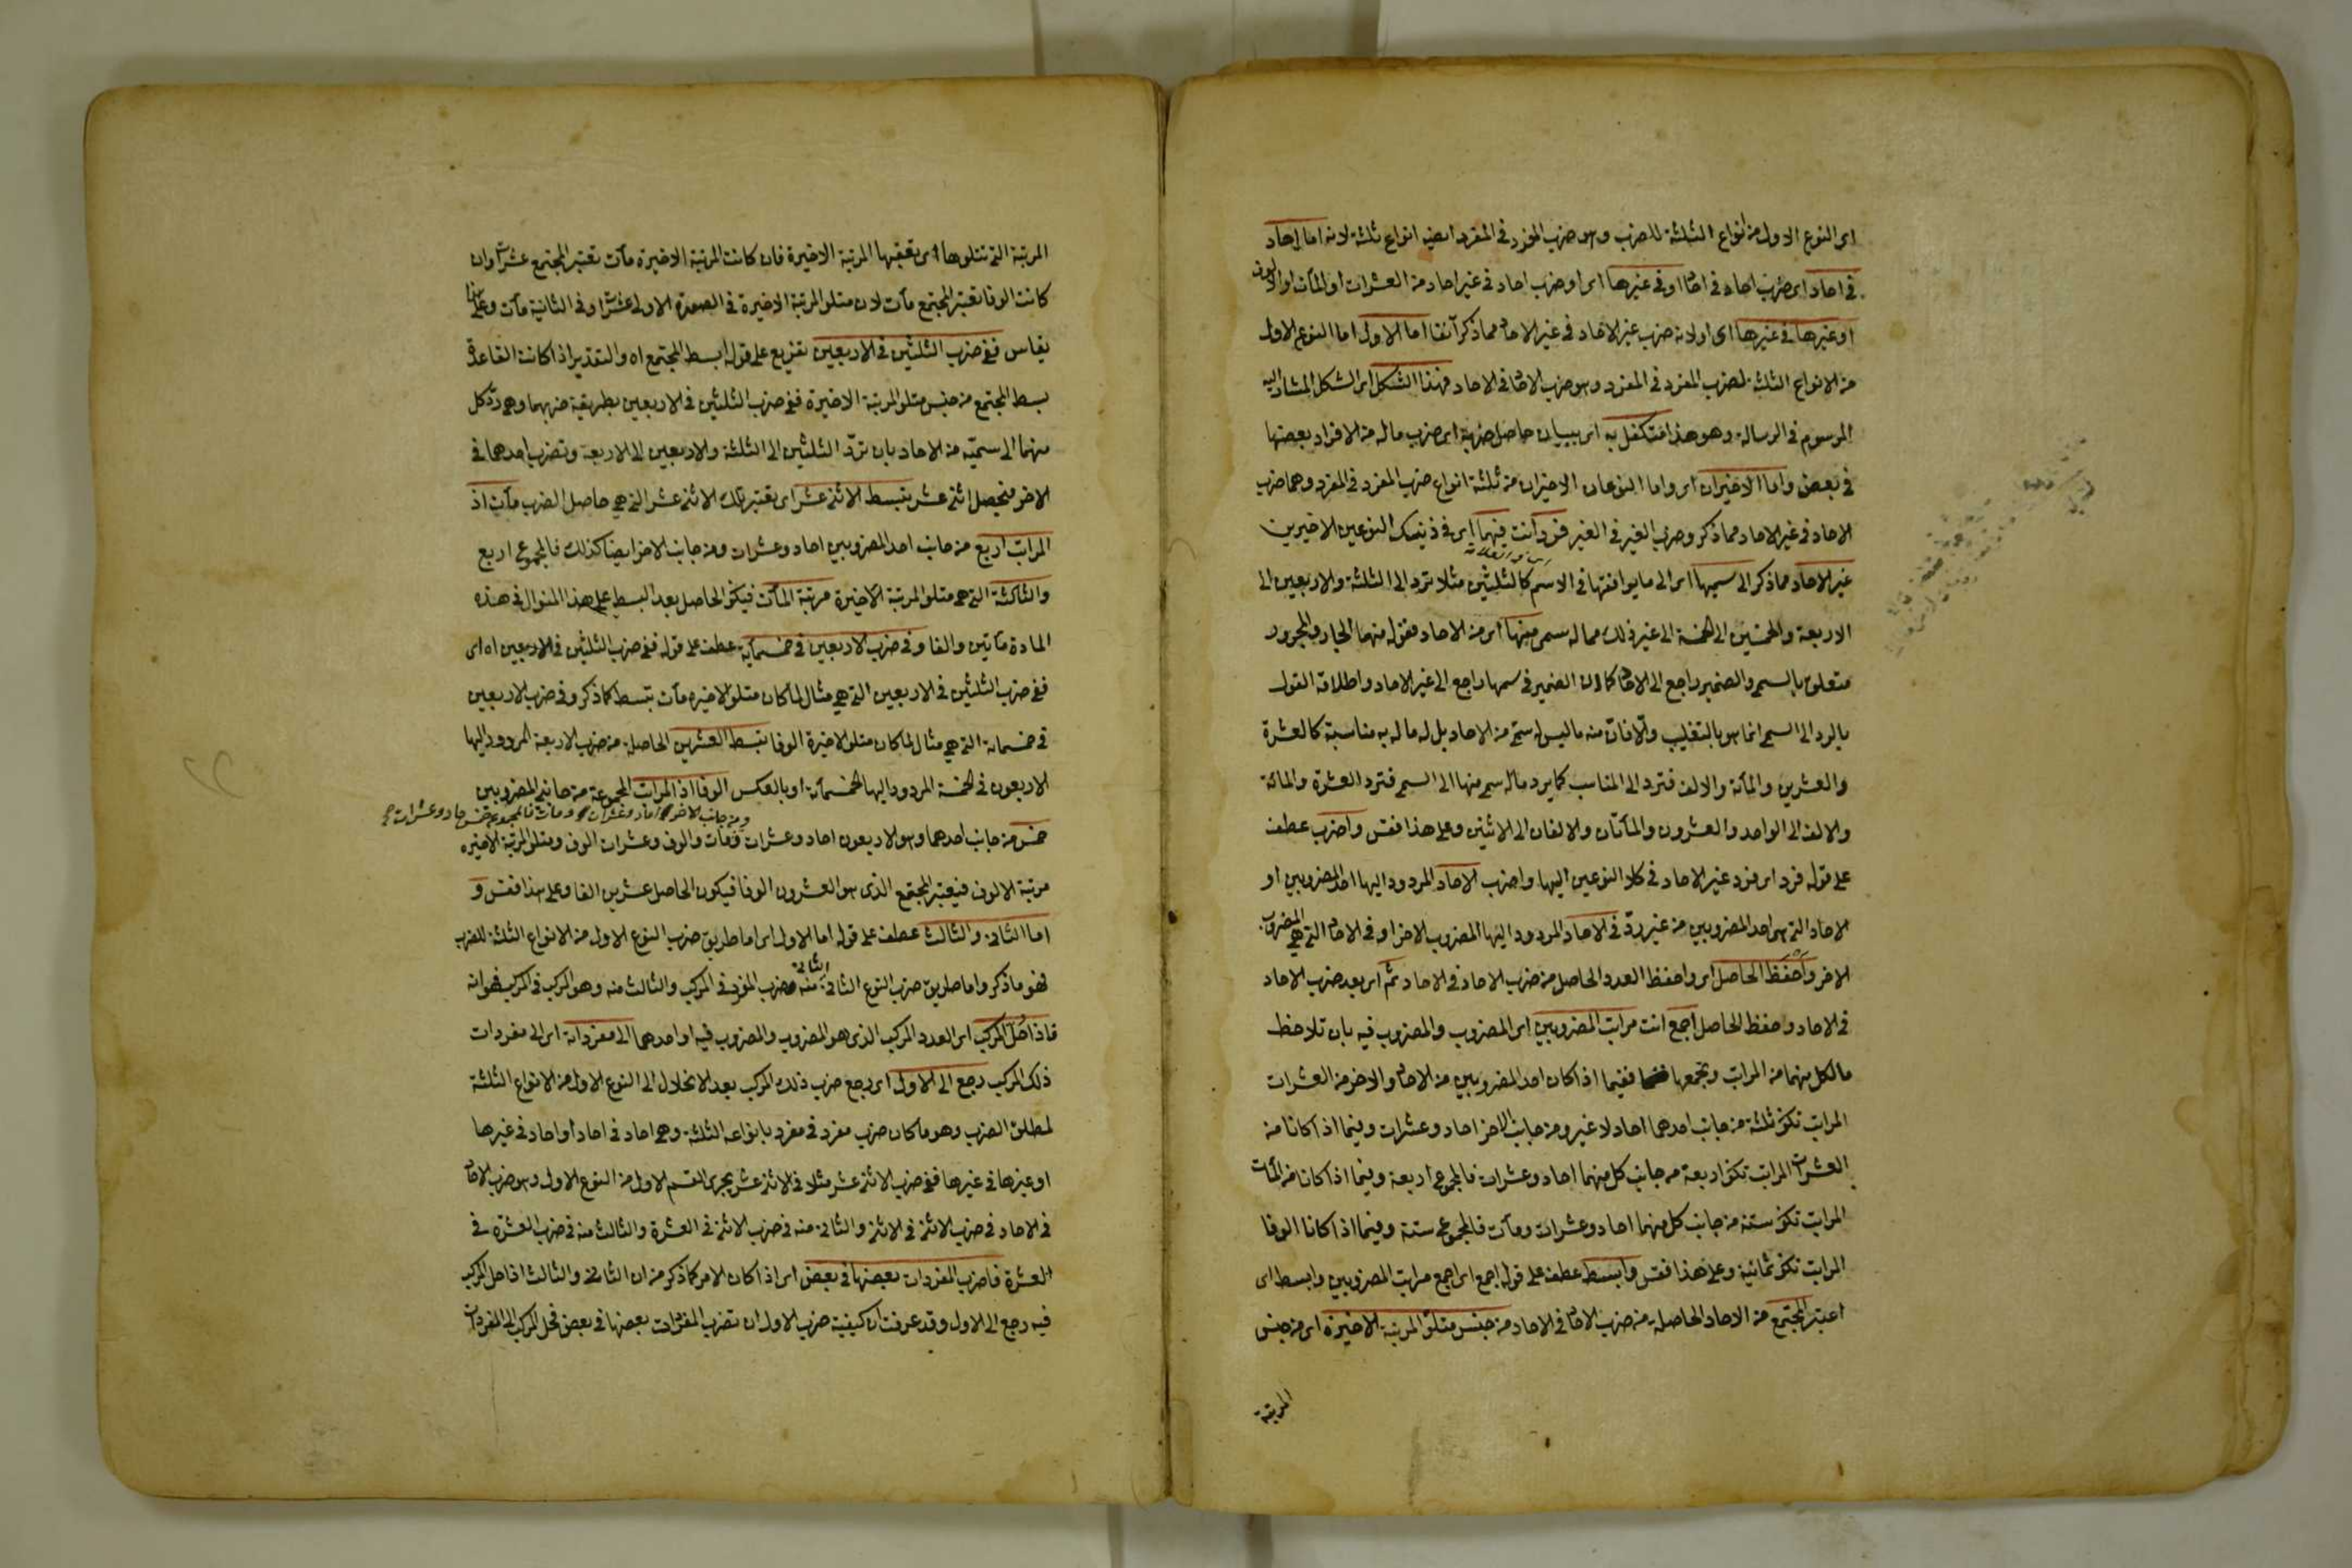 اى النوع الاول من انواع الثلثة للضرب وهو ضرب المفرد فى المفرد ايضا انواع ثلثة لانه اما احاد
فى احاد اى ضرب احاد فى احاد او فى غيرها اى او ضرب احاد فى غير احاد من العشرات او المآت او الالوف
او غيرها فى غيرها اى اولانه ضرب غير الاحاد فى غير الاحاد مما ذكر آنفا اما الاول اما النوع الاول
من الانواع الثلثة لضرب المفرد فى المفرد وهو ضرب الاحاد فى الاحاد فهذا الشكل اى الشكل المشار اليه
المرسوم فى الرسالة وهو هذا متكفل به اى ببيان حاصل ضربه اى ضرب ماله من الافراد بعضها
فى بعض واما الاخيران اى واما النوعان الاخيران من ثلثة انواع ضرب المفرد فى المفرد وهما ضرب
الاحاد فى غير الاحاد مما ذكر وضرب الغير فى الغير فرد أنت فيهما اى فى ذينك النوعين الاخيرين
غير الاحاد مما ذكر الى سميها اى الى ما يوافقها فى الاسم كالثلثين مثلا ترد الى الثلثة والاربعين الى
الاربعة والخمسين الى الخمسة الى غير ذلك مما له سمى منها اى من الاحاد فقوله منها الجار والمجرور
متعلق بالسمى والضمير راجع الى الاحاد كما ان الضمير فى سميها راجع الى غير الاحاد واطلاقه القول
بالرد الى السمى انما هو بالتغليب والا فان منه ما ليس له سمى من الاحاد بل له ما له به مناسبة كالعشرة
والعشرين والمأة والالف فترد الى المناسب كما يرد ماله سمى منها الى السمى فترد العشرة والمائة
والالف الى الواحد والعشرون والمأتان والالفان الى الاثنين وعلى هذا فقس واضرب عطف
على قوله فرد اى فرد غير الاحاد فى كلا النوعين اليها واضرب الاحاد المردود اليها احد المضروبين او
الاحاد التى هى احد المضروبين من غير رد فى الاحاد المردود اليها المضروب الاخر او فى الاحاد التى هى المضروب
الاخر واحفظ الحاصل اى واحفظ العدد الحاصل من ضرب الاحاد فى الاحاد ثم اى بعد ضرب الاحاد
فى الاحاد وحفظ الحاصل اجمع انت مراتب المضروبين اى المضروب والمضروب فيه بان تلاحظ
ما لكل منهما من المراتب وتجمعها ففيما اذا كان احد المضروبين من الاحاد والاخر من العشرات
المراتب تكون ثلثة من جانب احدهما احاد لا غير ومن جانب الاخر احاد وعشرات وفيما اذا كانا من
العشرات المراتب تكون اربعة من جانب كل منهما احاد وعشرات فالمجموع اربعة وفيما اذا كانا من المآت
المراتب تكون ستة من جانب كل منهما احاد وعشرات ومآت فالمجموع ستة وفيما اذا كانا الوفا
المراتب تكون ثمانية وعلى هذا فقس وابسط عطف على قوله اجمع اى اجمع مراتب المضروبين وابسط اى
اعتبر المجتمع من الاحاد الحاصلة من ضرب الاحاد فى الاحاد من جنس متلو المرتبة الاخيرة اى من جنس
المرتبة
المرتبة التى تتلوها اى تعقبها المرتبة الاخيرة فان كانت المرتبة الاخيرة مآت تعتبر المجتمع عشرات وان
كانت الوفا تعتبر المجتمع مآت لان متلو المرتبة الاخيرة فى الصورة الاولى عشرات وفى الثانية مآت وعلى هذا
يقاس ففى ضرب الثلثين فى الاربعين تفريع على قوله ابسط المجتمع اه والتقدير اذا كانت القاعدة
بسط المجتمع من جنس متلو المرتبة الاخيرة ففى ضرب الثلثين فى الاربعين بطريقة ضربهما وهى رد كل
منهما الى سميه من الاحاد بان ترد الثلثين الى الثلثة والاربعين الى الاربعة وتضرب احدهما فى
الاخر فيحصل اثنى عشر تبسط الاثنى عشر اى تعتبر تلك الاثنى عشر التى هى حاصل الضرب مآت اذ
المراتب اربع من جانب احد المضروبين احاد وعشرات ومن جانب الاخر ايضا كذلك فالمجموع اربع
والثالثة التى هى متلو المرتبة الاخيرة مرتبة المآت فيكون الحاصل بعد البسط على هذا المنوال فى هذه
المادة مأتين والفا وفى ضرب الاربعين فى خمسمأية عطف على قوله ففى ضرب الثلثين فى الاربعين اه اى
ففى ضرب الثلثين فى الاربعين التى هى مثال لما كان متلو الاخيرة مآت تبسط كما ذكر وفى ضرب الاربعين
فى خمسمائة التى هى مثال لما كان متلو الاخيرة الوفا تبسط العشرين الحاصلة من ضرب الاربعة المردود اليها
الاربعون فى الخمسة المردود اليها الخمسمأة او بالعكس الوفا اذ المراتب المجموعة من جانبى المضروبين
ومن جانب الاخر احاد وعشرات ومآت فالمجموع خمس
خمس من جانب احدهما وهو الاربعون احاد وعشرات والوف وعشرات الوف ومتلو المرتبة الاخيرة
مرتبة الالوف فيعتبر المجتمع الذى هو العشرون الوفا فيكون الحاصل عشرين الفا وعلى هذا فقس و
اما الثانى والثالث عطف على قوله اما الاول اى اما طريق ضرب النوع الاول من الانواع الثلثة للضرب
فهو ما ذكر واما طريق ضرب النوع الثانى منه وضرب المفرد فى المركب والثالث منه وهو المركب فى المركب فهو انه
فاذا حل المركب اى العدد المركب الذى هو المضروب والمضروب فيه او احدهما الى مفرداته اى الى مفردات
ذلك المركب رجع الى الاول اى رجع ضرب ذلك المركب بعد الانحلال الى النوع الاول من الانواع الثلثة
لمطلق الضرب وهو ما كان ضرب مفرد فى مفرد بانواعه الثلثة وهى احاد فى احاد او احاد فى غيرها
او غيرها فى غيرها ففى ضرب الاثنى عشر مثلا فى الاثنى عشر يجرى القسم الاول من النوع الاول وهو ضرب الاحاد
فى الاحاد فى ضرب الاثنى فى الاثنى والثانى منه فى ضرب الاثنى فى العشرة والثالث منه فى ضرب العشرة فى
العشرة فاضرب المفردات بعضها فى بعض اى اذا كان الامر كما ذكر من ان الثانى والثالث اذا حل المركب
فيه رجع الى الاول وقد عرفت ان كيفية ضرب الاول ان تضرب المفردات بعضها فى بعض فحل المركب الى المفردات